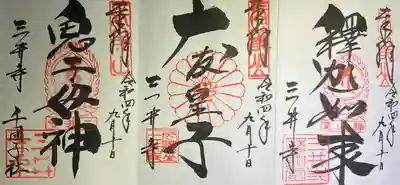 奉拝
令和四年
九月十日
釋迦如来
三井寺
奉拝
令和四年
九月十日
大友皇子
三井寺
奉拝
令和四年
九月十日
鬼子母神
三井寺
千団子社